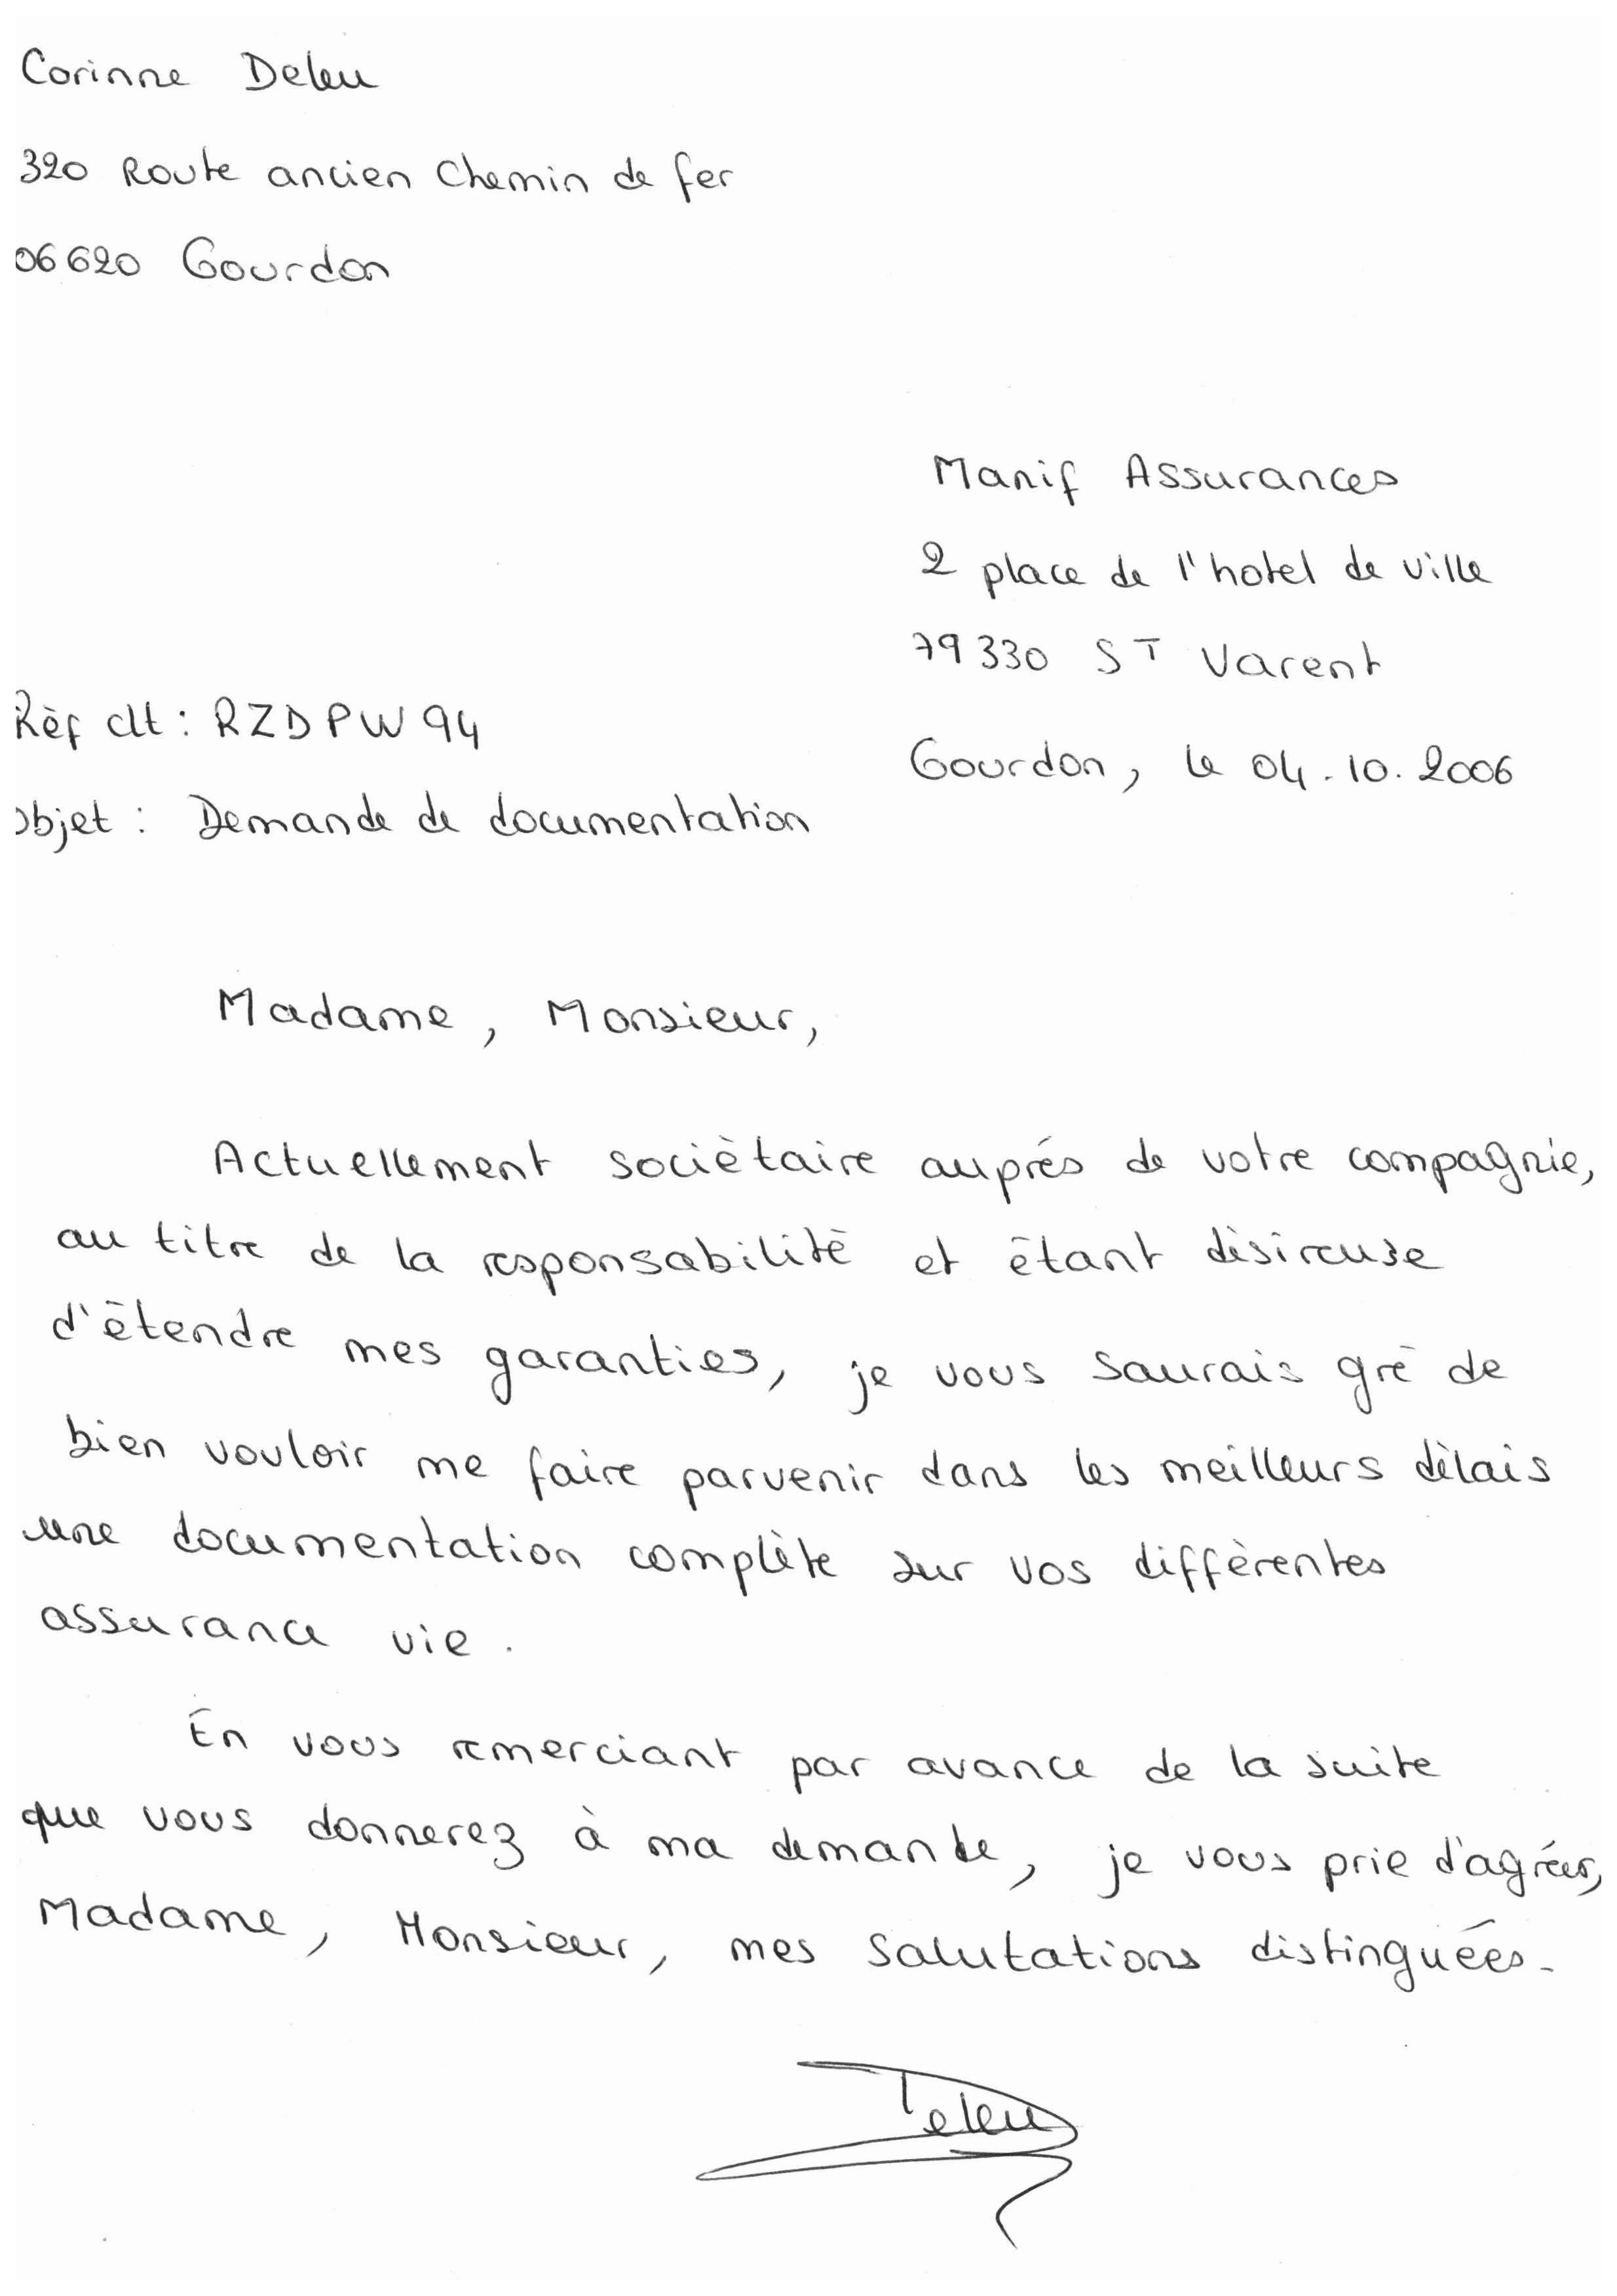 Corinne Deleu
320 Route ancien Chemin de fer
06620 Gourdon
Manif Assurances
2 place de l'hotel de ville
79330 ST Varent
Réf clt : RZDPW94
Gourdon, le 04.10.2006
Objet : Demande de documentation
Madame, Monsieur,
Actuellement sociètaire auprés de votre compagnie,
au titre de la responsabilité et étant désireuse
d'étendre mes garanties, je vous saurais gré de
bien vouloir me faire parvenir dans les meilleurs délais
une documentation complète sur vos différentes
assurance vie.
En vous remerciant par avance de la suite
que vous donnerez à ma demande, je vous prie d'agréer,
Madame, Monsieur, mes salutations distinguées.
Deleu